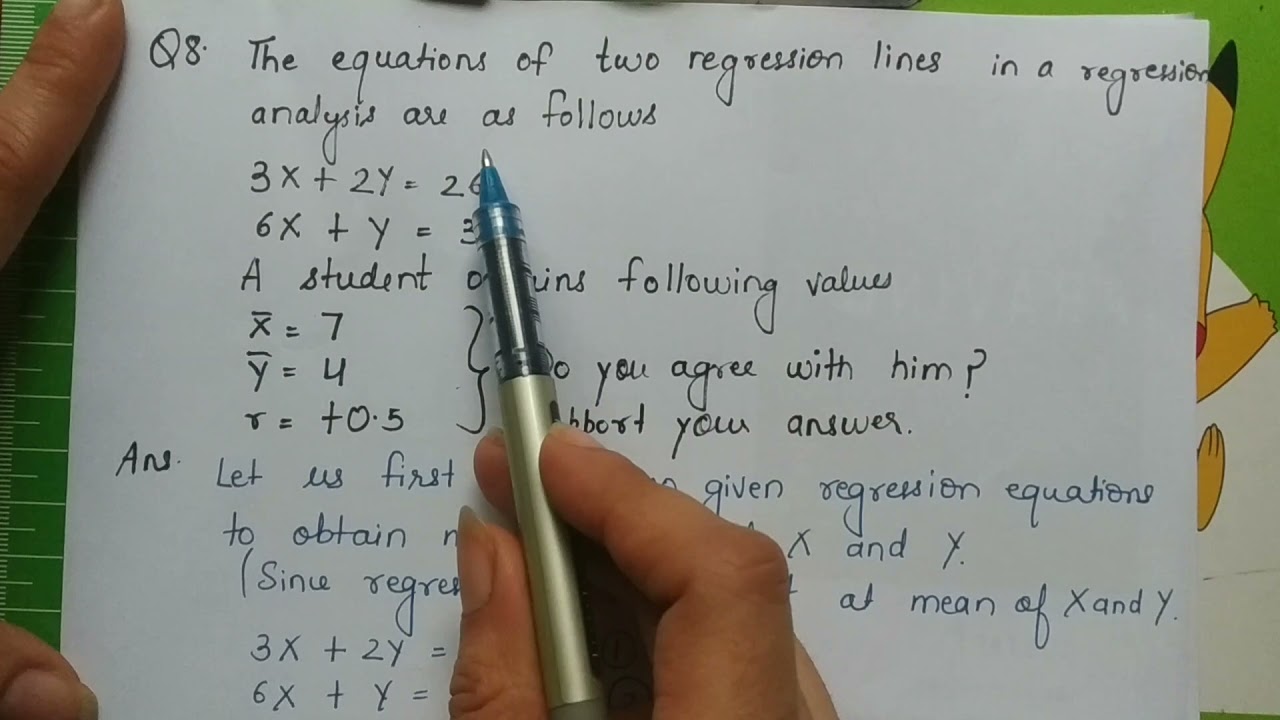 Q8. The equations of two regression lines in a regression
analysis are as follows
3X + 2Y = 2
6X + Y = 3
A student following values
x̄ = 7
ȳ = 4 you agree with him?
r = +0.5 your answer.
Ans. Let us first given regression equations
to obtain X and Y.
(Since at mean of X and Y.
3X + 2Y =
6X + Y =